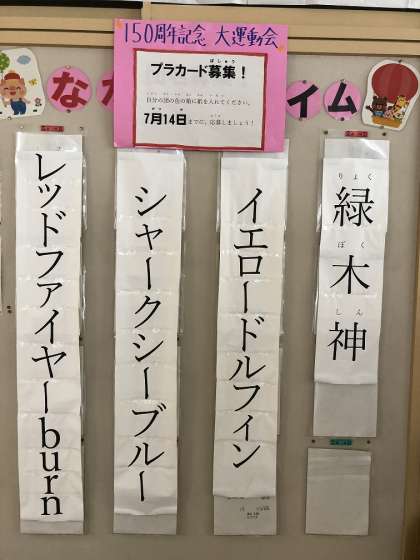 150周年記念 大運動会
プラカード募集！
自分の団の色の箱に紙を入れてください。
7月14日までに、応募しましょう！
な
イム
緑木神
りょくぼくしん
イエロードルフィン
シャークシーブルー
レッドファイヤーburn